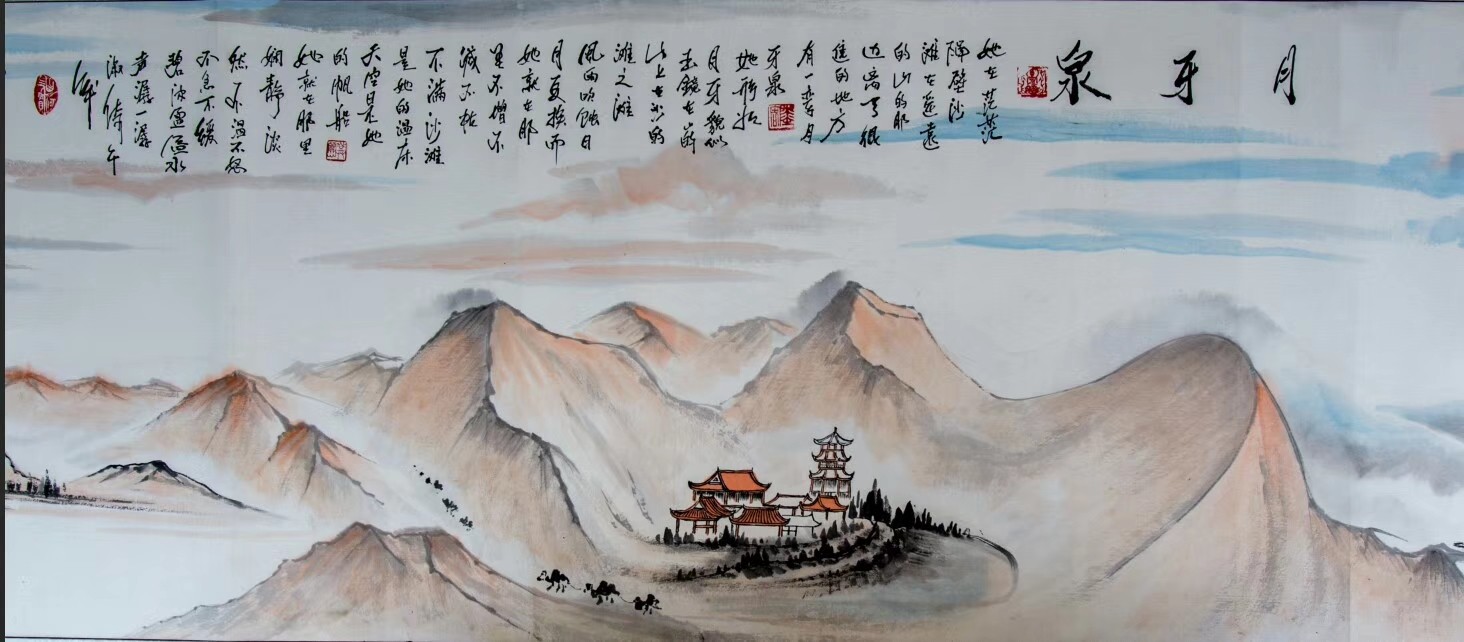 月牙泉
她在茫茫
隔壁沙
滩在遥远
的山的那
边离了很
远的地方
有一弯月
牙泉
她形状
月牙貌似
玉镜在
山上在沙的
滩之滩
风雨吹蚀日
月更换而
她就在那
里不增不
减不枯
不满沙滩
是她的温床
天空是她
的帆船
她就在那里
娴静淡
然不温不怒
不急不缓
碧波盈盈水
声潺一潺